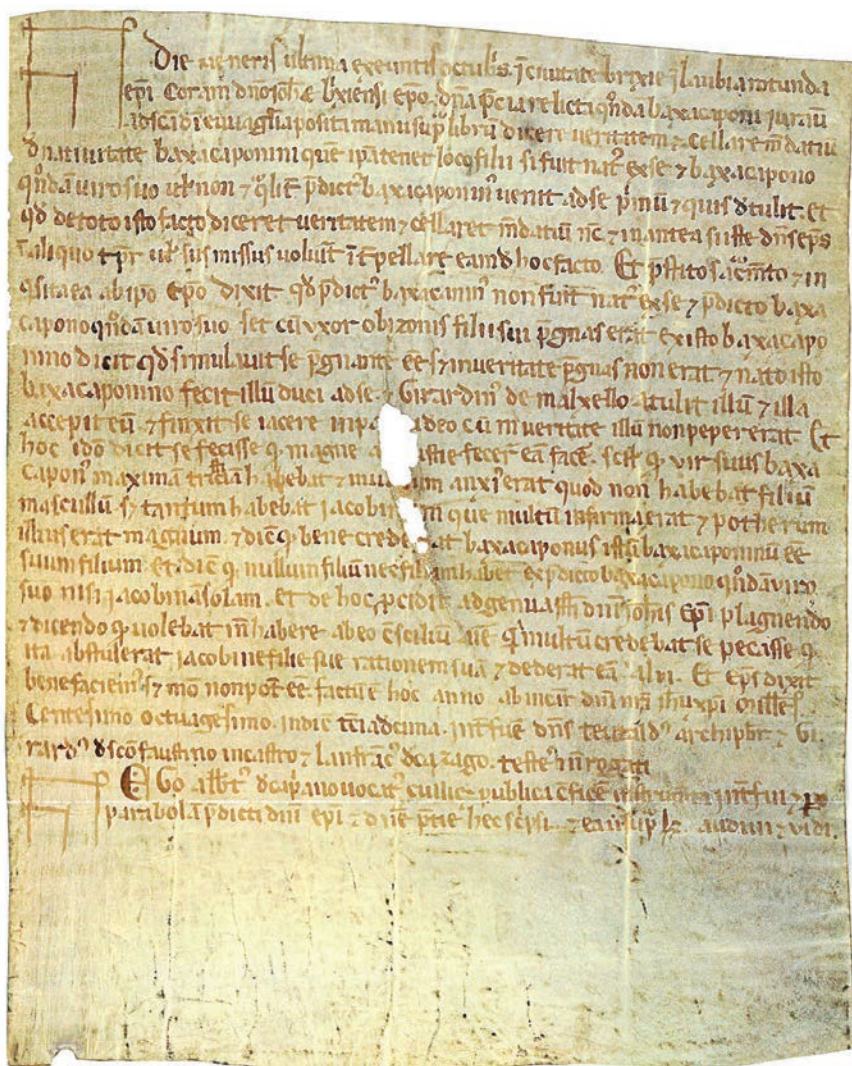 Die veneris ultima exeuntis octub's. ī civitate brixie ī laubia rotunda
ep̄i Coram dn̄o Joh̄e b'xiensi ep̄o. dn̄a relicta q̄nda baxacaponi
aposita manu sup̄ librū dicere veritatem ⁊ Cellare
d nativitate baxacaponini quē ip̄a tenet loco filii si fuit nat' ex se ⁊ baxacapono
q̄ndā viro suo ul' non ⁊ q̄lit' p̄dict' baxacaponin' venit ad se p'mū ⁊ quis d'tulit. et
qd̄ de toto isto facto diceret veritatem ⁊ cellaret
aliquo tp̄r ul' suus missus voluīt eam d hoc facto. Et p̄stito sac̄m̄to ⁊ in
q̄sita ea ab ip̄o ep̄o dixit qd̄ p̄dict' non fuit nat' ex se ⁊ p̄dicto baxa
capono q̄ndā viro suo set cū uxor obizonis filii sui p̄gnas erat ex isto baxacapo
nino dicit qd̄ simulavit se p̄gnantē eē s; in veritate p̄gnas non erat ⁊ nato isto
baxacaponino fecit illū duci ad se. ⁊ Girardin' de malxello atulit illū ⁊ illa
accepit eū ⁊ finxit se iacere in deo cū in veritate illū non pepererat. Et
hoc ido dicit se fecisse q. magne fecer̄ eā facē. scil' q. vir suus baxa
capon' maximā habebat ⁊ quod non habebat filiū
mascullū. s; tantum habebat jacobin m que multū infirma erat ⁊ potherum
illius erat magnum. ⁊ dic̄ q. bene crede at baxacaponus istū baxacaponinū eē
suum filium et. dic̄ q. nullum filiū nec filiam habet ex p̄dicto baxacapono q̄ndā viro
suo nisi jacobinā solam. et de hoc p̄cidit ad genua dn̄i Joh̄is Ep̄i plagnendo
⁊ dicendo q. volebat habere ab eo c̄silium q. multū credebat se pecasse q.
ita abstulerat jacobine filie sue rationem suā ⁊ dederat eā alii. Et ep̄s dixit
bene faciem' s; m̊o non pot̄ eē. factū ē hoc anno ab incar̄ dn̄i n̄ri ih̄u xp̄i Mille.
Centesimo octuagesimo. indic̄ t̄cia decima. int̄ fuē dn̄s archip̄br̄ ⁊ Gi
rard' d' sc̄o faustino in castro ⁊ Lanfrāc' teste' rogati
Ego alb̄t' vocat' publica instrum̄ta int̄ fui ⁊ p
parabolā p̄dicti dn̄i ep̄i ⁊ dn̄e hec sc'psi. audivi ⁊ vidi.